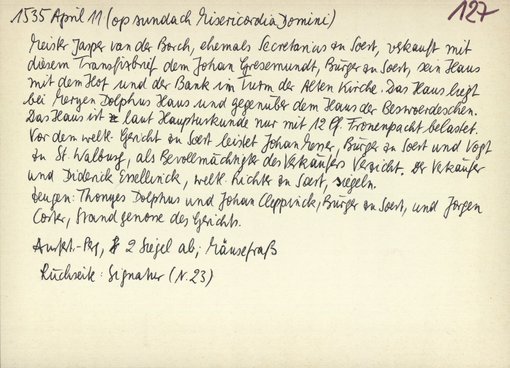 1535 April 11 (op sundach Misericordia Domini) 127
Meister Jasper van der Borch, ehemals Secretarius zu Soest, verkauft mit
diesem Transfixbrief dem Johan Gresemundt, Bürger zu Soest, sein Haus
mit dem Hof und der Bank im Turm der Alten Kirche. Das Haus liegt
bei Meryen Dolphus Haus und gegenüber dem Haus der
Das Haus ist laut Haupturkunde nur mit 12 Pf. Fronenpacht belastet.
Vor dem weltl. Gericht zu Soest leistet Johan Meyer, Bürger zu Soest und Vogt
zu St. Walburg, als Bevollmächtigter des Verkäufers Verzicht. Der Verkäufer
und Diderick Esellirick, weltl. Richter zu Soest, siegeln.
Zeugen: Thonyes Dolphus und Johan Cleppinck, Bürger zu Soest, und Jorgen
Coster, Standgenosse des Gerichts.
Ausf.-Perg, 2 Siegel ab; Mäusefraß
Rückseite: Signatur (N. 23)